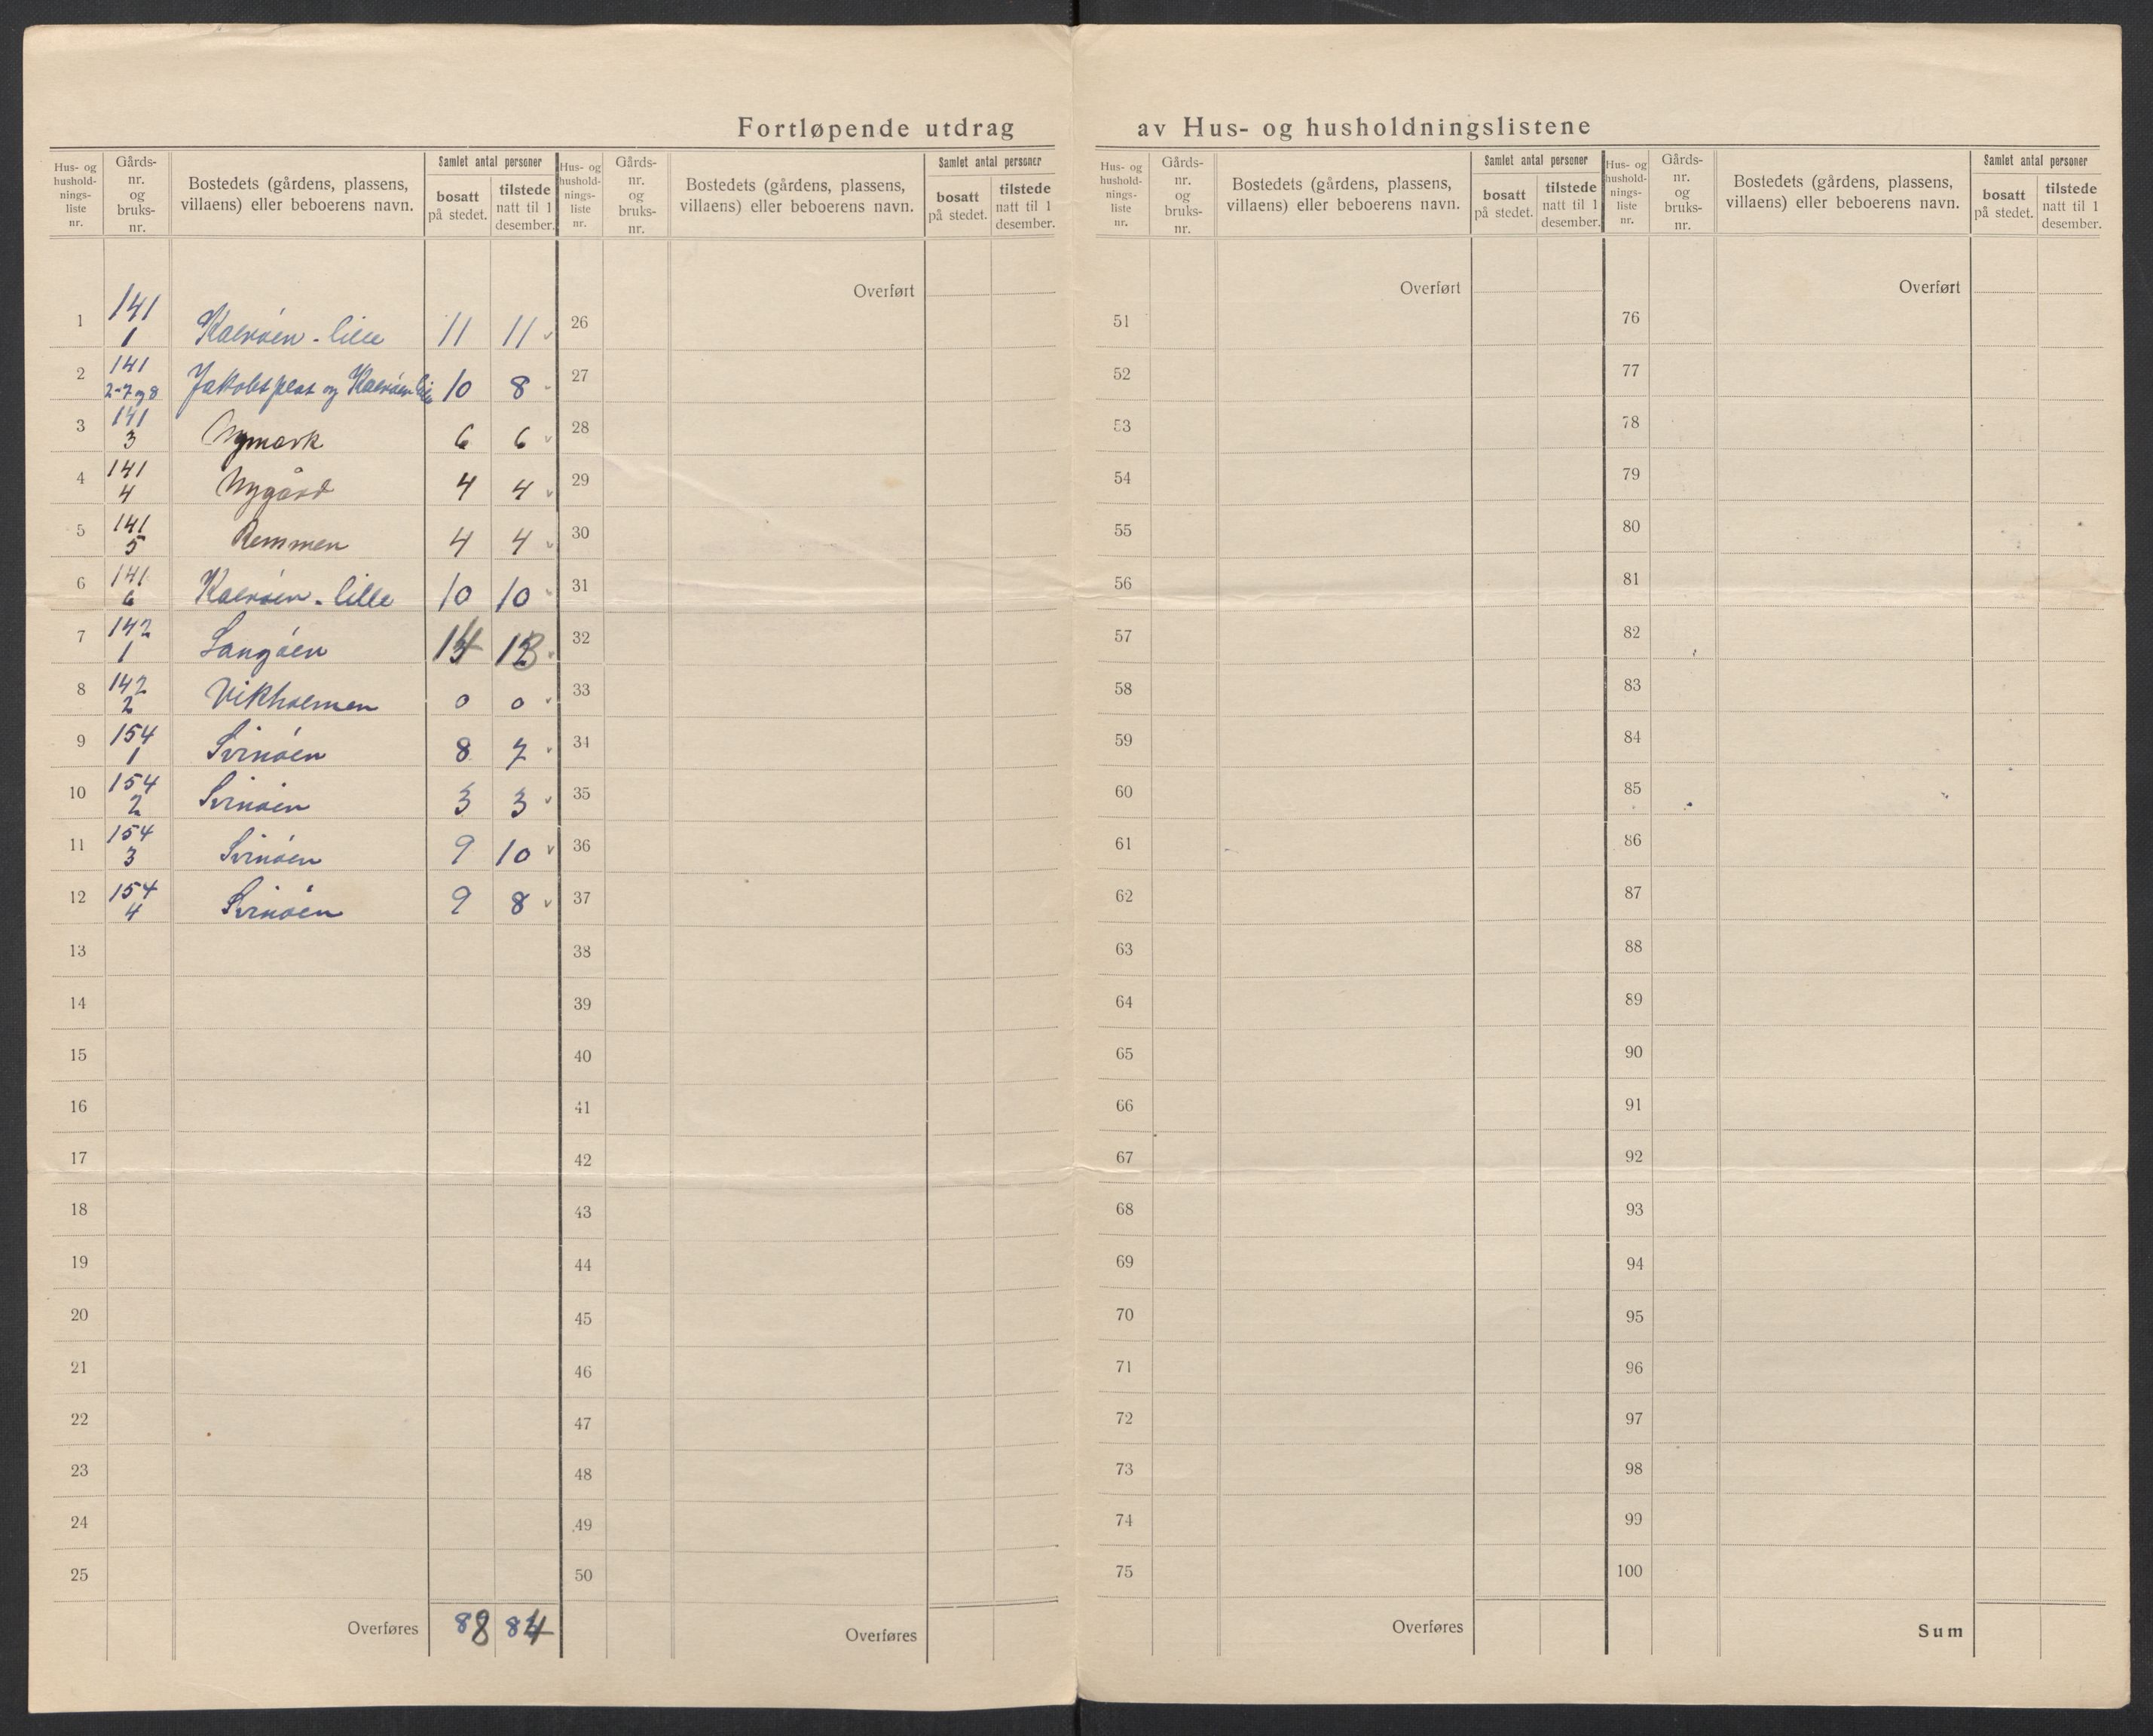 Fortløpende utdrag av Hus- og husholdningslistene
Hus- og hushold- nings- liste nr.
Gårds- nr. og bruks- nr.
Bostedets (gårdens, plassens, villaens) eller beboerens navn.
Samlet antal personer
bosatt på stedet.
tilstede natt til 1 desember.
Hus- og hushold- nings- liste nr.
Gårds- nr. og bruks- nr.
Bostedets (gårdens, plassens, villaens) eller beboerens navn.
Samlet antal personer
bosatt på stedet.
tilstede natt til 1 desember.
Hus- og hushold- nings- liste nr.
Gårds- nr. og bruks- nr.
Bostedets (gårdens, plassens, villaens) eller beboerens navn.
Samlet antal personer
bosatt på stedet.
tilstede natt til 1 desember.
Hus- og hushold- nings- liste nr.
Gårds- nr. og bruks- nr.
Bostedets (gårdens, plassens, villaens) eller beboerens navn.
Samlet antal personer
bosatt på stedet.
tilstede natt til 1 desember.
1 141 1 Kalvøen - lille 11 11
2 141 2-7 og 8 Jakobsplas og Kalvøen lille 10 8
3 141 3 Nymark 6 6
4 141 4 Nygård 4 4
5 141 5 Remmen 4 4
6 141 6 Kalvøen - lille 10 10
7 142 1 Langøen 14 13
8 142 2 Vikholmen 0 0
9 154 1 Svinøen 8 7
10 154 2 Svinøen 3 3
11 154 3 Svinøen 9 10
12 154 4 Svinøen 9 8
13
14
15
16
17
18
19
20
21
22
23
24
25
Overføres 88 84
Overført
26
27
28
29
30
31
32
33
34
35
36
37
38
39
40
41
42
43
44
45
46
47
48
49
50
Overføres
Overført
51
52
53
54
55
56
57
58
59
60
61
62
63
64
65
66
67
68
69
70
71
72
73
74
75
Overføres
Overført
76
77
78
79
80
81
82
83
84
85
86
87
88
89
90
91
92
93
94
95
96
97
98
99
100
Sum